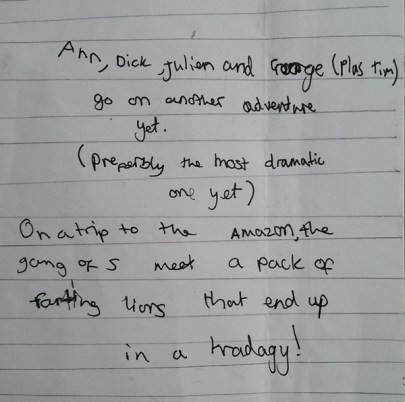 Ann, Dick, Julien and George (Plus Tim)
go on another adventure
yet.
(preperbly the most dramatic
one yet)
On a trip to the Amazon, the
gang of 5 meet a pack of
farting lions that end up
in a tradagy!